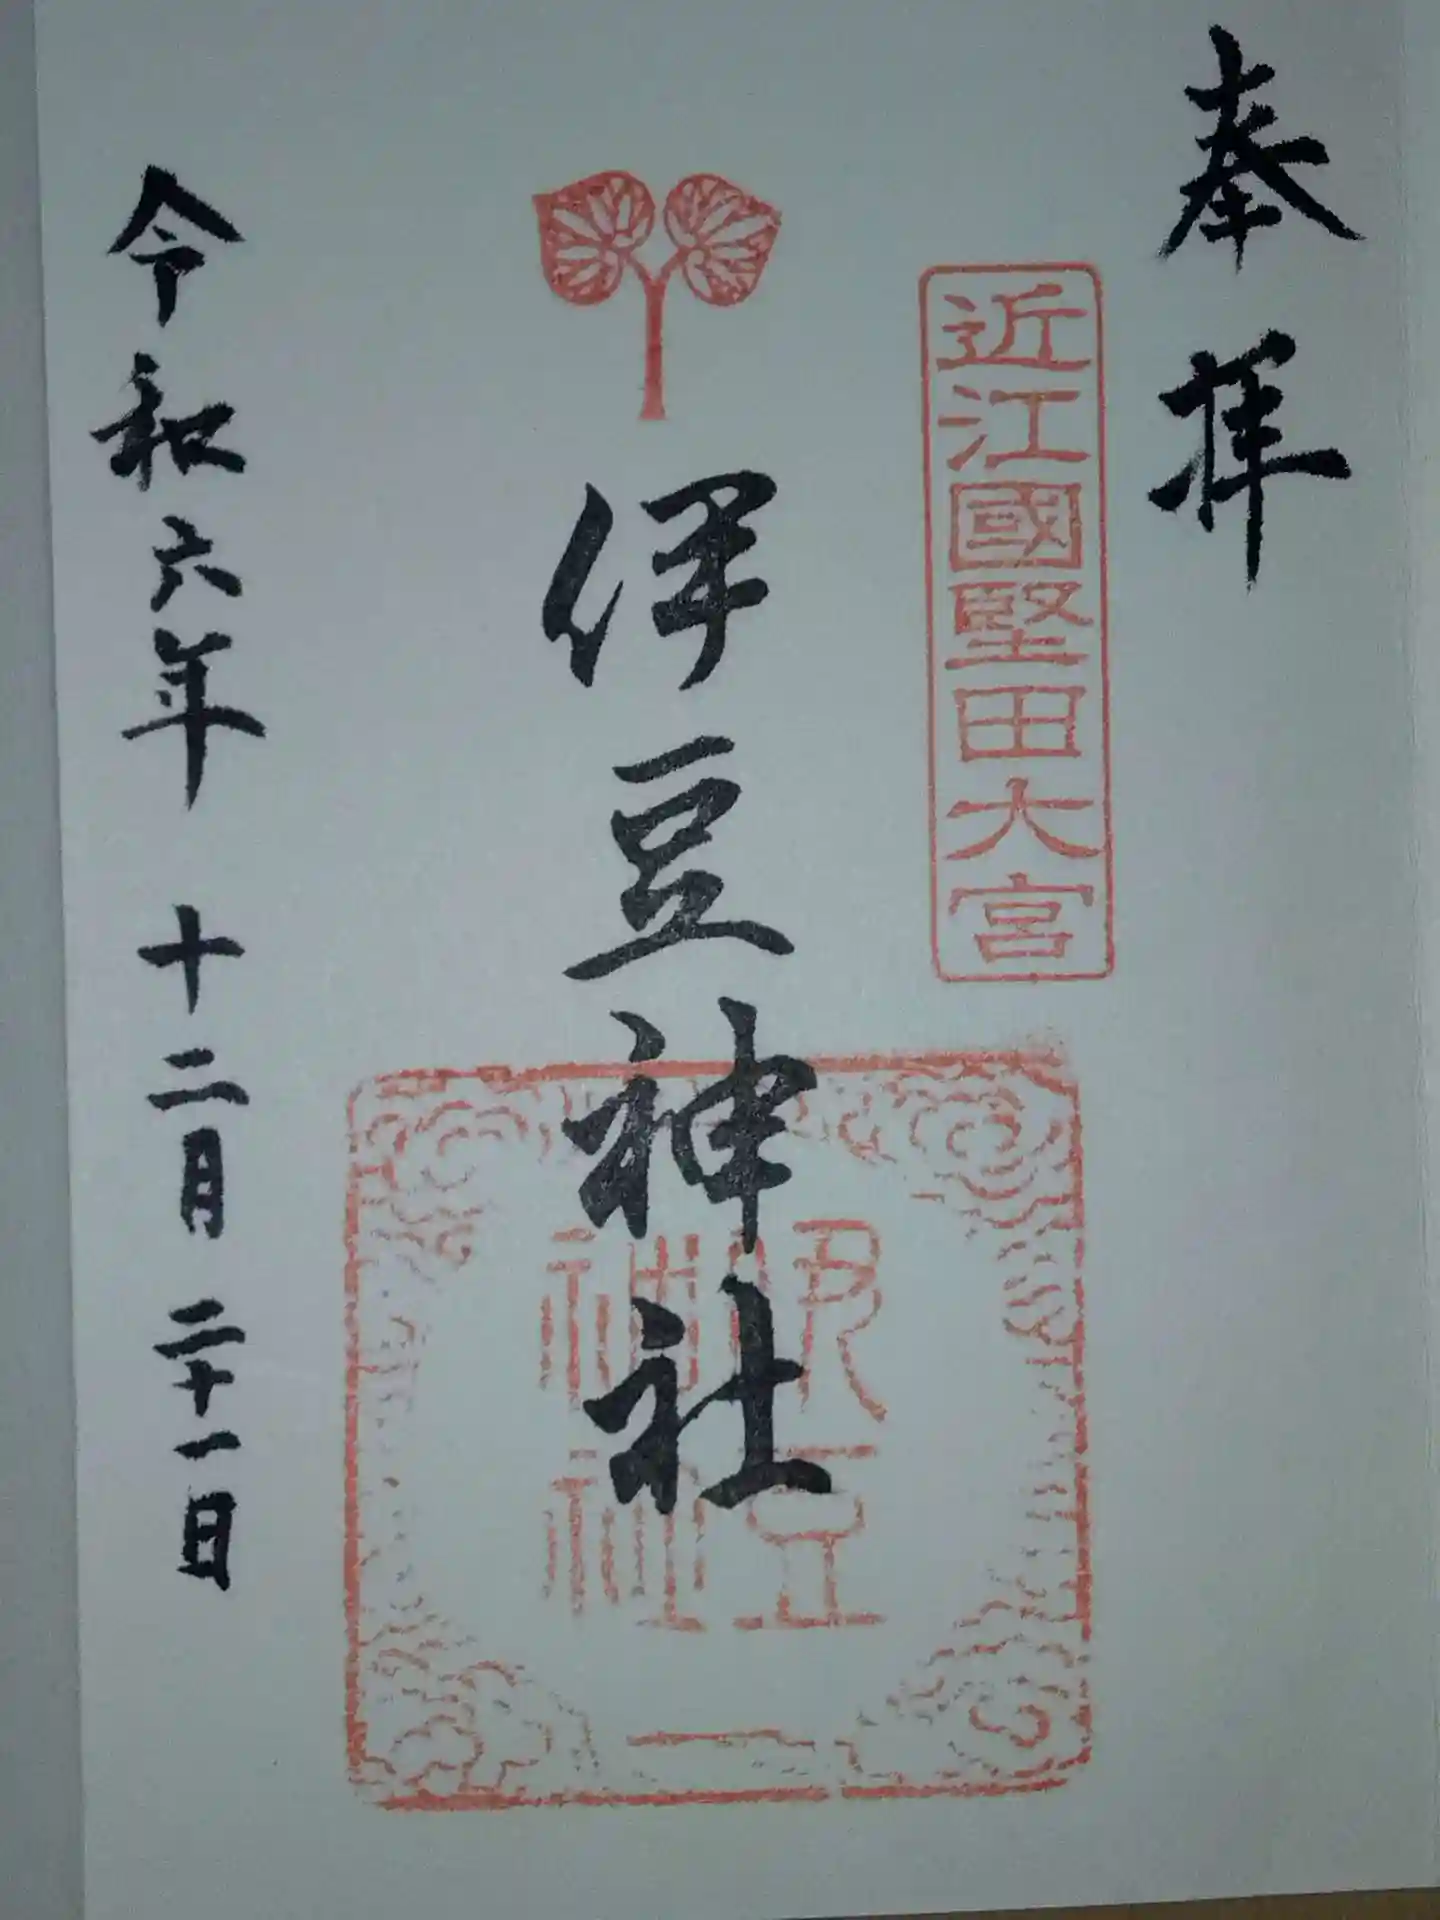 奉拝
近江國堅田大宮
伊豆神社
伊豆
神社
令和六年 十二月 二十一日